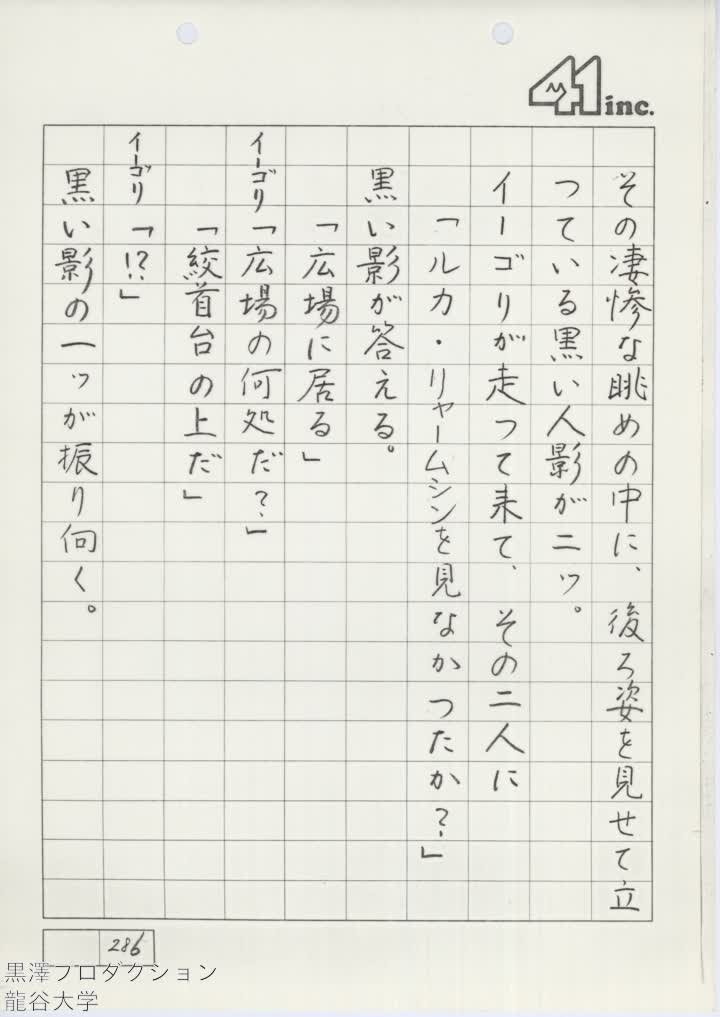 41 inc.
その凄惨な眺めの中に、後ろ姿を見せて立
つている黒い人影が二ッ。
イーゴリが走つて来て、その二人に
「ルカ・リャームシンを見なかつたか？」
黒い影が答える。
「広場に居る」
イーゴリ「広場の何処だ？」
「絞首台の上だ」
イーゴリ「!?」
黒い影の一ッが振り向く。
286
黒澤プロダクション
龍谷大学